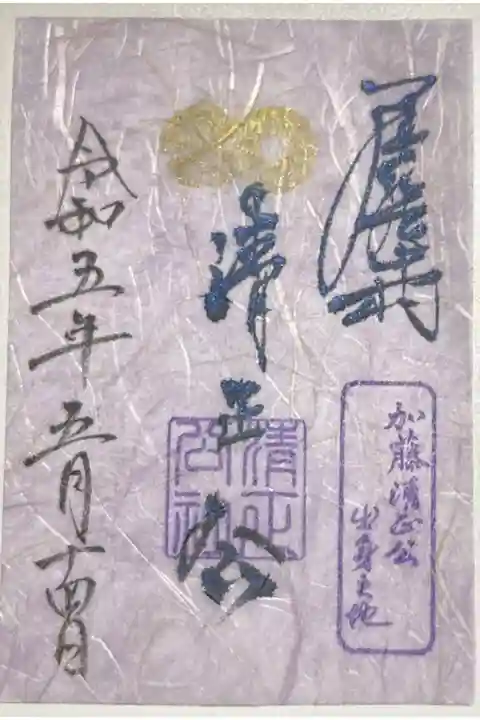 加藤清正公
出身之地
清正公
清正
公社
令和五年五月十四日